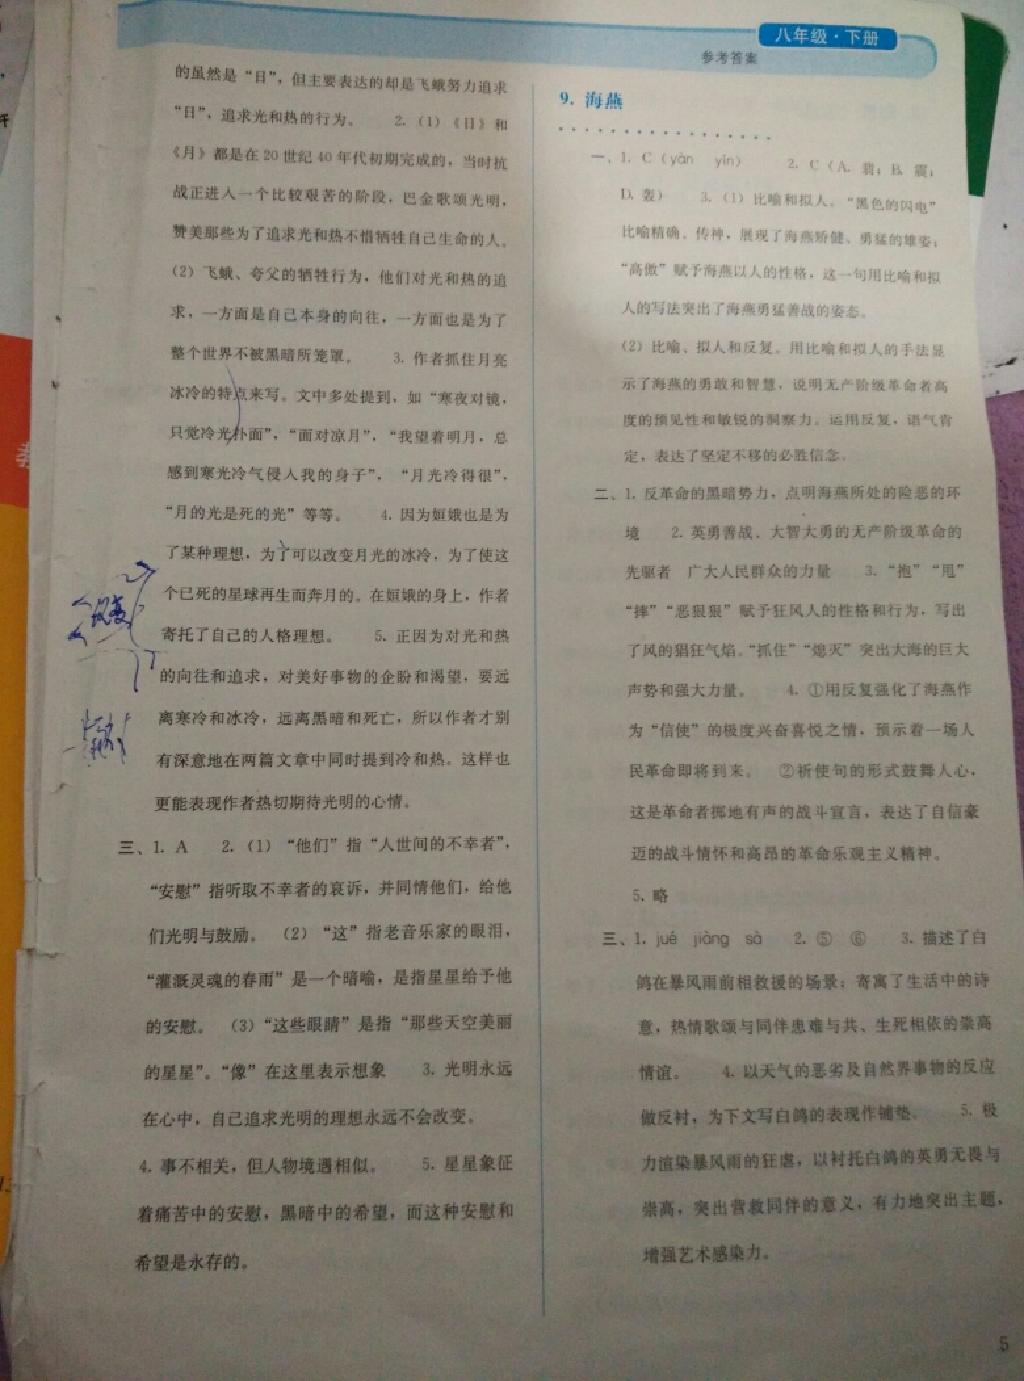 八年级·下册
参考答案
的虽然是“日”，但主要表达的却是飞蛾努力追求
“日”，追求光和热的行为。 2.（1）《日》和
《月》都是在20世纪40年代初期完成的，当时抗
战正进入一个比较艰苦的阶段，巴金歌颂光明，
赞美那些为了追求光和热不惜牺牲自己生命的人。
（2）飞蛾、夸父的牺牲行为，他们对光和热的追
求，一方面是自己本身的向往，一方面也是为了
整个世界不被黑暗所笼罩。 3. 作者抓住月亮
冰冷的特点来写。文中多处提到，如“寒夜对镜，
只觉冷光扑面”，“面对凉月”，“我望着明月，总
感到寒光冷气侵入我的身子”，“月光冷得很”，
“月的光是死的光”等等。 4. 因为姮娥也是为
了某种理想，为了可以改变月光的冰冷，为了使这
个已死的星球再生而奔月的。在姮娥的身上，作者
寄托了自己的人格理想。 5. 正因为对光和热
的向往和追求，对美好事物的企盼和渴望，要远
离寒冷和冰冷，远离黑暗和死亡，所以作者才别
有深意地在两篇文章中同时提到冷和热。这样也
更能表现作者热切期待光明的心情。
三、1. A 2.（1）“他们”指“人世间的不幸者”，
“安慰”指听取不幸者的哀诉，并同情他们，给他
们光明与鼓励。（2）“这”指老音乐家的眼泪，
“灌溉灵魂的春雨”是一个暗喻，是指星星给予他
的安慰。（3）“这些眼睛”是指“那些天空美丽
的星星”。“像”在这里表示想象 3. 光明永远
在心中，自己追求光明的理想永远不会改变。
4. 事不相关，但人物境遇相似。 5. 星星象征
着痛苦中的安慰，黑暗中的希望，而这种安慰和
希望是永存的。
9. 海燕
一、1. C（yàn yín） 2. C（A. 翡；B. 震；
D. 轰） 3.（1）比喻和拟人。“黑色的闪电”
比喻精确、传神，展现了海燕矫健、勇猛的雄姿；
“高傲”赋予海燕以人的性格，这一句用比喻和拟
人的写法突出了海燕勇猛善战的姿态。
（2）比喻、拟人和反复。用比喻和拟人的手法显
示了海燕的勇敢和智慧，说明无产阶级革命者高
度的预见性和敏锐的洞察力。运用反复，语气肯
定，表达了坚定不移的必胜信念。
二、1. 反革命的黑暗势力，点明海燕所处的险恶的环
境 2. 英勇善战、大智大勇的无产阶级革命的
先驱者 广大人民群众的力量 3. “抱”“甩”
“摔”“恶狠狠”赋予狂风人的性格和行为，写出
了风的猖狂气焰。“抓住”“熄灭”突出大海的巨大
声势和强大力量。 4. ①用反复强化了海燕作
为“信使”的极度兴奋喜悦之情，预示着一场人
民革命即将到来。 ②祈使句的形式鼓舞人心，
这是革命者掷地有声的战斗宣言，表达了自信豪
迈的战斗情怀和高昂的革命乐观主义精神。
5. 略
三、1. jué jiàng sà 2. ⑤ ⑥ 3. 描述了白
鸽在暴风雨前相救援的场景；寄寓了生活中的诗
意，热情歌颂与同伴患难与共、生死相依的崇高
情谊。 4. 以天气的恶劣及自然界事物的反应
做反衬，为下文写白鸽的表现作铺垫。 5. 极
力渲染暴风雨的狂虐，以衬托白鸽的英勇无畏与
崇高，突出营救同伴的意义，有力地突出主题，
增强艺术感染力。
5